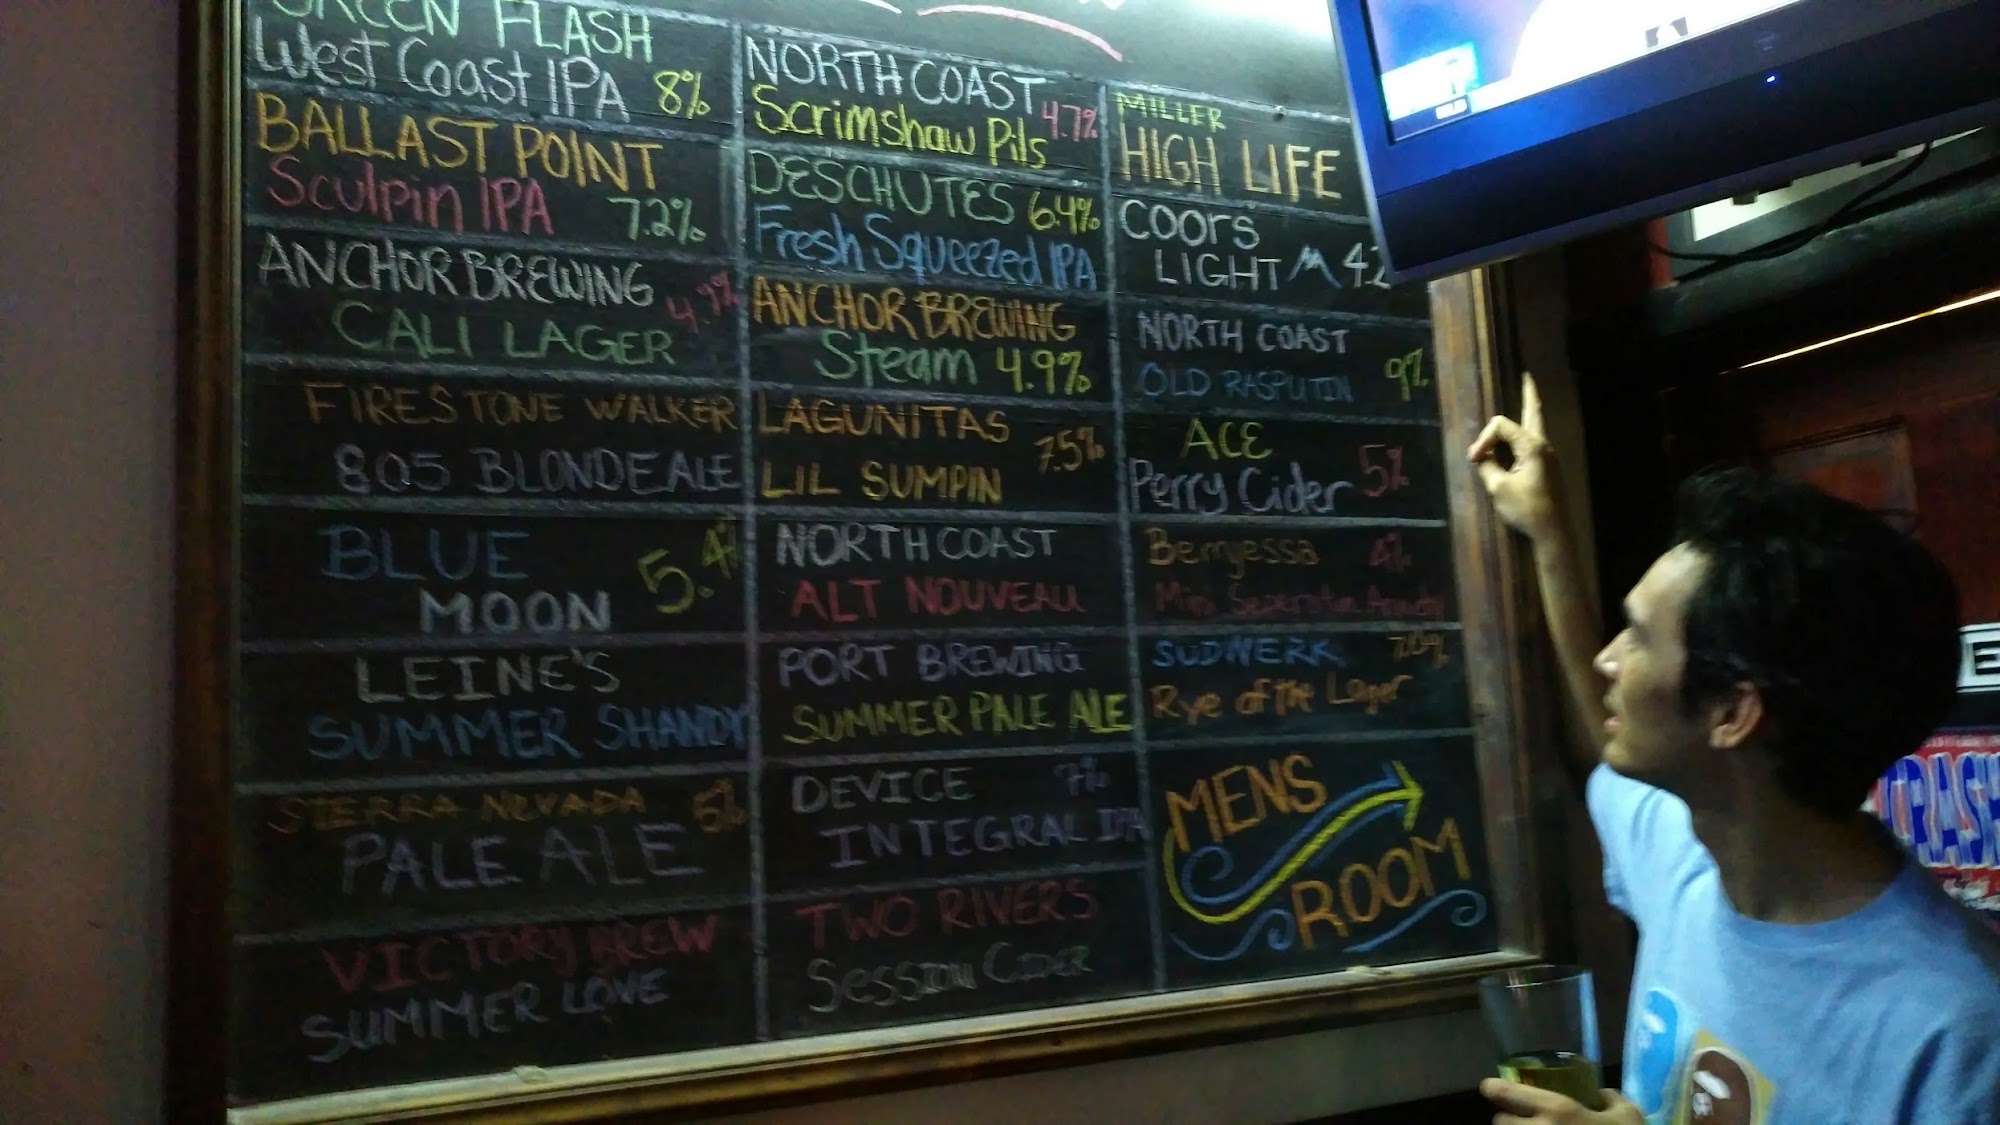 GREEN FLASH
West Coast IPA 8%
BALLAST POINT
Sculpin IPA 7.2%
ANCHOR BREWING 4.9%
CALI LAGER
FIRESTONE WALKER
805 BLONDE ALE
BLUE
MOON 5.4%
LEINE'S
SUMMER SHANDY
SIERRA NEVADA 5%
PALE ALE
VICTORY BREW
SUMMER LOVE
NORTH COAST 4.7%
Scrimshaw Pils
DESCHUTES 6.4%
Fresh Squeezed IPA
ANCHOR BREWING
Steam 4.9%
LAGUNITAS 7.5%
LIL SUMPIN
NORTH COAST
ALT NOUVEAU
PORT BREWING
SUMMER PALE ALE
DEVICE 7%
INTEGRAL IPA
TWO RIVERS
SESSION CIDER
MILLER
HIGH LIFE
COORS
LIGHT
NORTH COAST 9%
OLD RASPUTIN
ACE
Perry Cider 5%
Berryessa 4%
Mini Seperation
SUDWERK
Rye of the Lager
MENS
ROOM